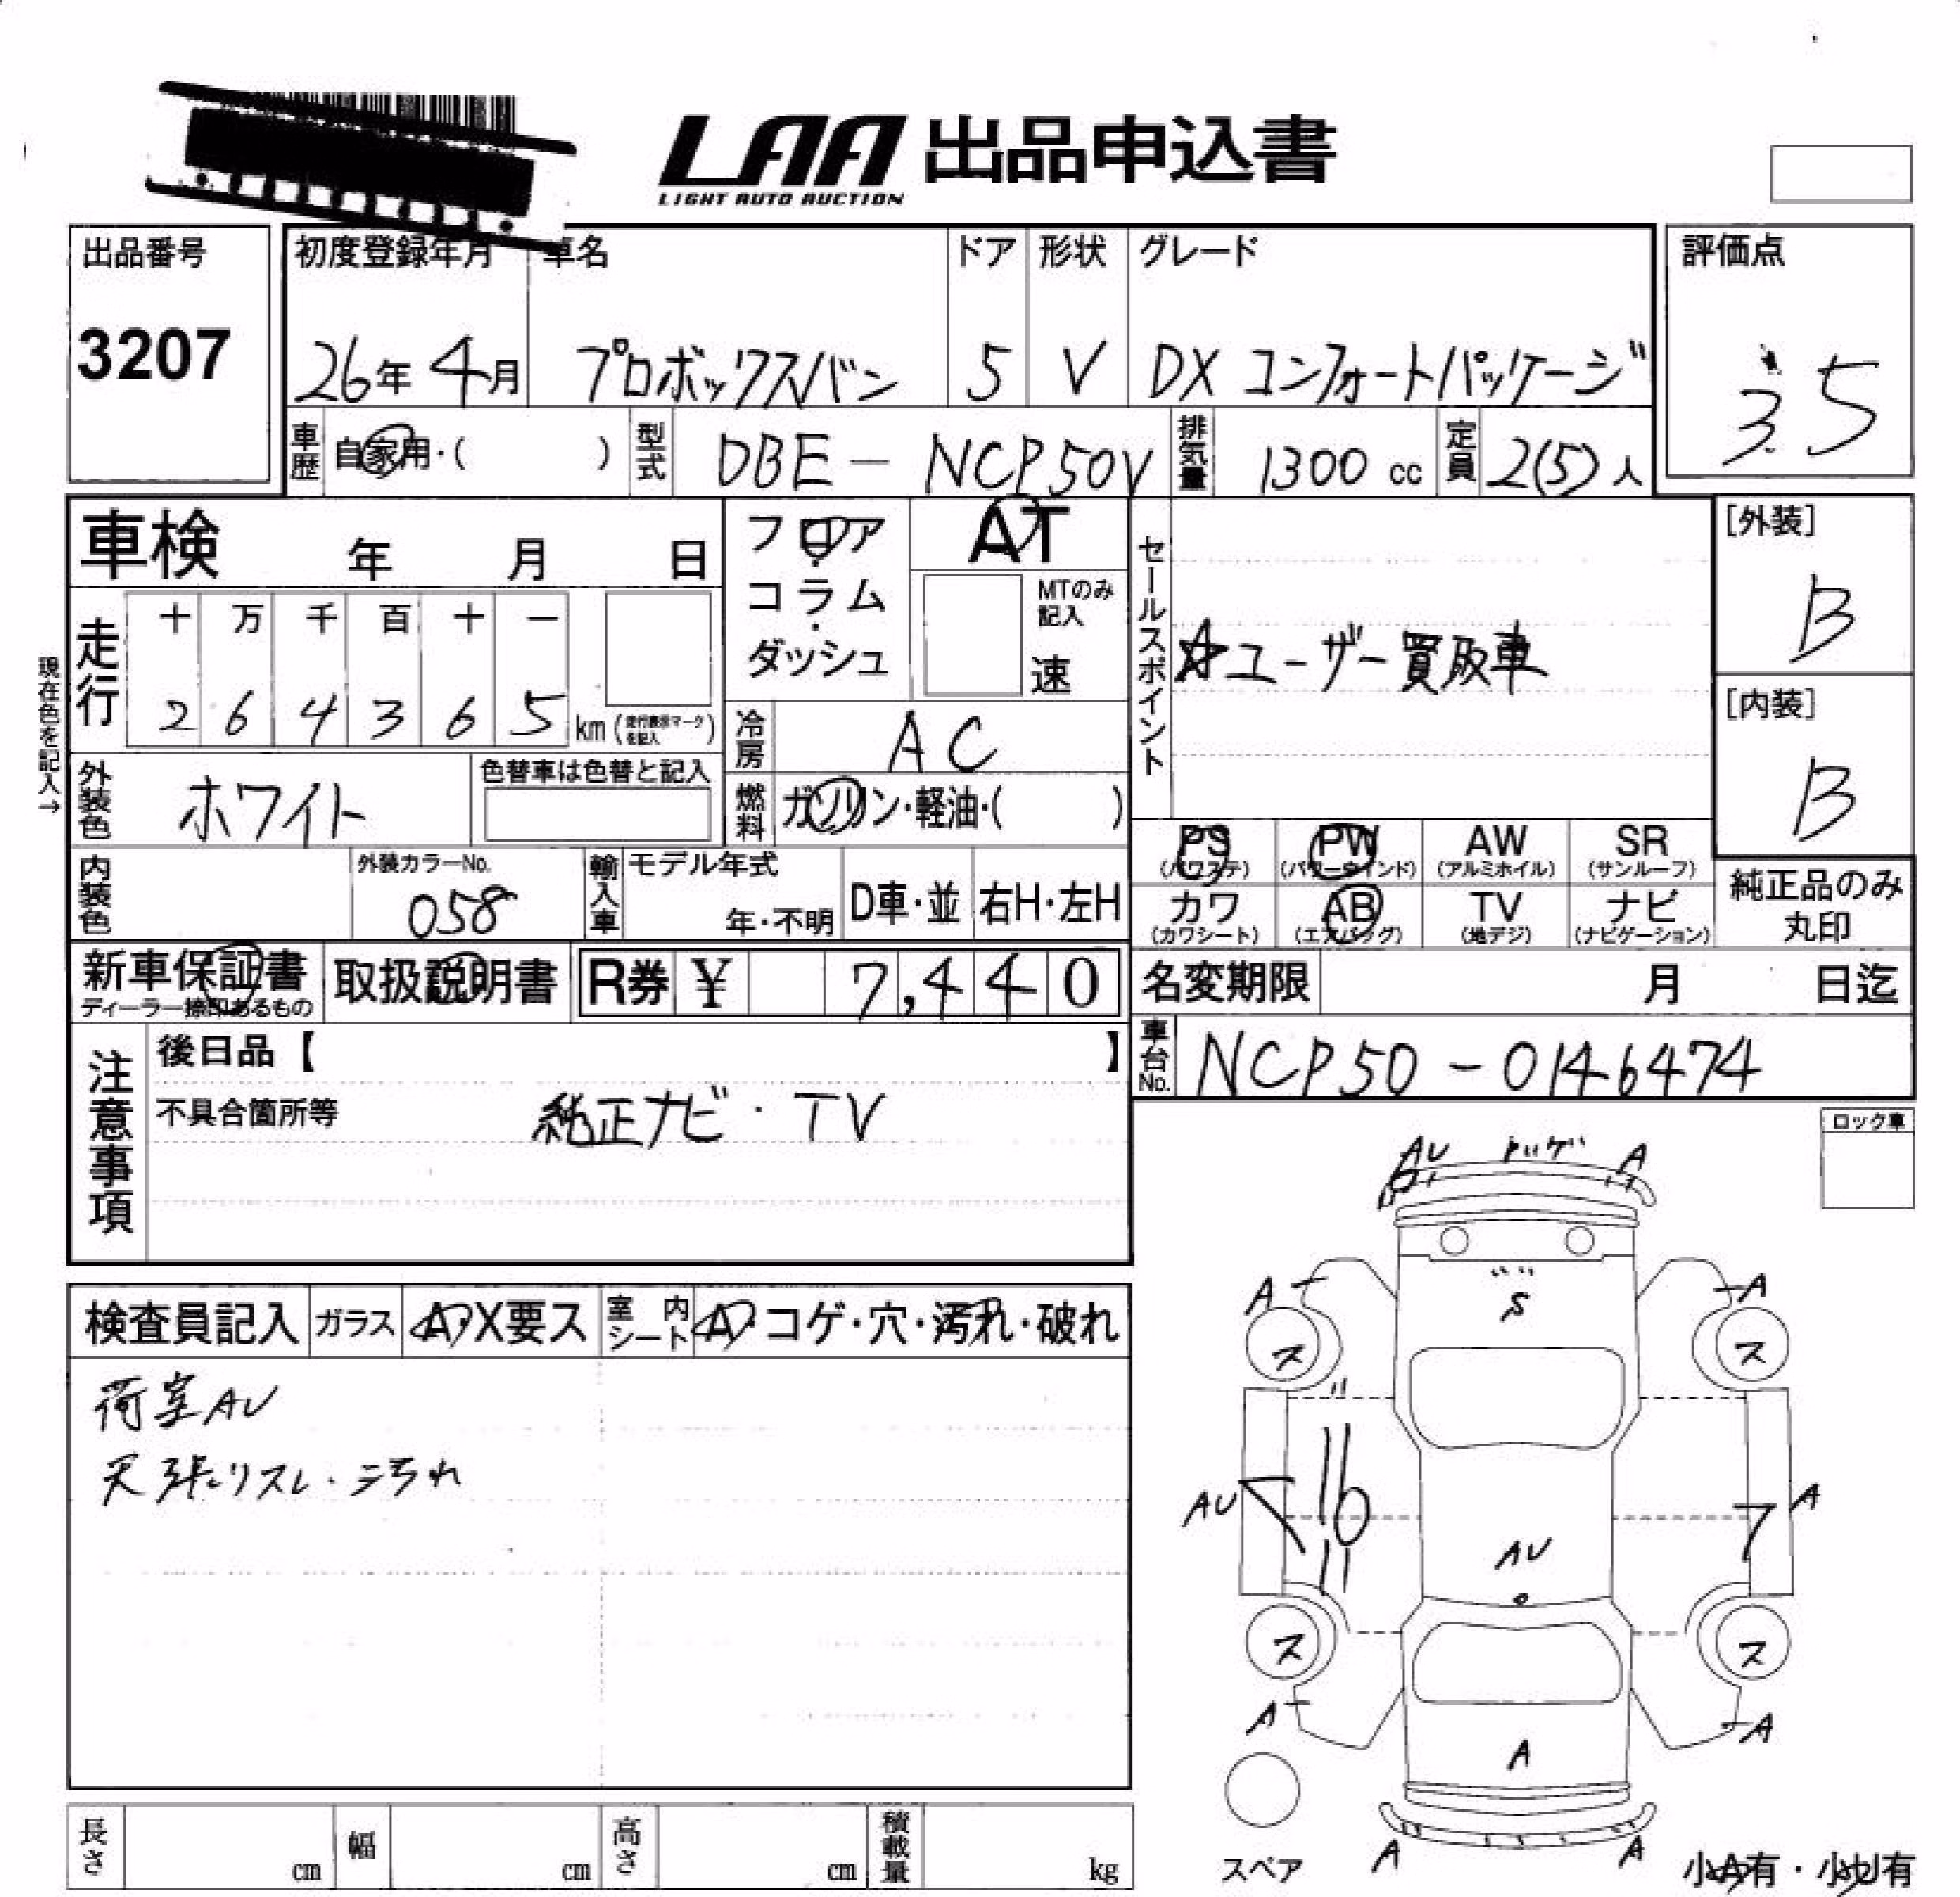 LAA 出品申込書
LIGHT AUTO AUCTION
出品番号
3207
初度登録年月 車名 ドア 形状 グレード
26年 4月 プロボックスバン 5 V DX コンフォートパッケージ
評価点
3.5
車歴 自家用・( ) 型式 DBE - NCP50V 排気量 1300 cc 定員 2(5) 人
車検 年 月 日
フロア・コラム・ダッシュ
AT
MTのみ記入
速
セールスポイント
☆ユーザー買取車
[外装]
B
[内装]
B
現在色を記入→
走行 十 万 千 百 十 一
2 6 4 3 6 5 km (走行表示マークを記入)
冷房 AC
外装色 ホワイト 色替車は色替と記入
燃料 ガソリン・軽油・( )
PS (パワステ) PW (パワーウインド) AW (アルミホイル) SR (サンルーフ)
カワ (カワシート) AB (エアバッグ) TV (地デジ) ナビ (ナビゲーション)
純正品のみ丸印
内装色 外装カラーNo. 058 輸入車 モデル年式 年・不明 D車・並 右H・左H
新車保証書 ディーラー捺印あるもの 取扱説明書 R券 ¥ 7,440 名変期限 月 日迄
車台No. NCP50-0146474
注意事項
後日品【 】
不具合箇所等 純正ナビ・TV
ロック車
AU トッゲ A
S
A A
ス ス
AU 16 A
AU
ス ス
A A
A
A A
スペア
小A有・小U有
検査員記入 ガラス A・X要ス 室内シート A・コゲ・穴・汚れ・破れ
荷室AU
天張リスレ・汚れ
長さ cm 幅 cm 高さ cm 積載量 kg